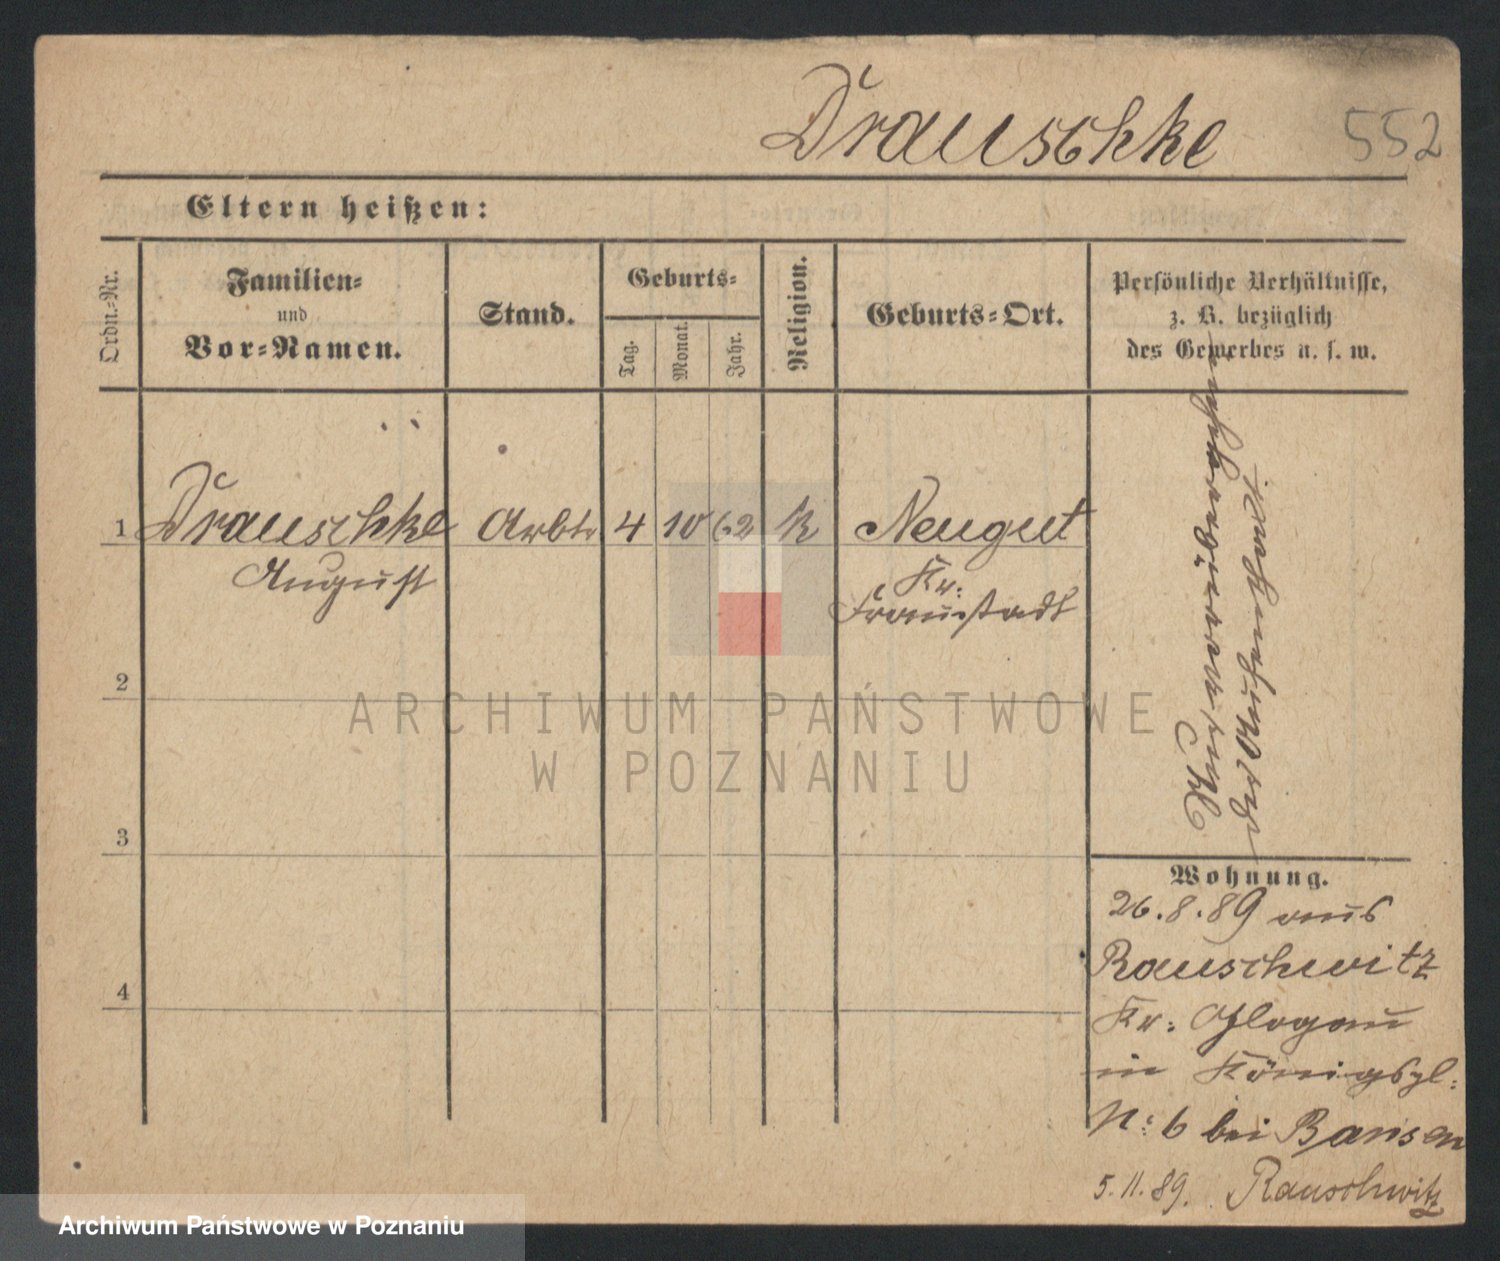 Drauschke 552
Eltern heißen:
Ordn.-Nr.
Familien-
und
Vor-Namen.
Stand.
Geburts-
Tag.
Monat.
Jahr.
Religion.
Geburts-Ort.
Persönliche Verhältnisse,
z. B. bezüglich
des Gewerbes u. s. w.
1 Drauschke Arbtr 4 10 62 K Neugut
August Kr:
Fraustadt
2
3
4
Wohnung.
26.8.89 aus
Rauschwitz
Kr: Glogau
in Königspl:
N: 6 bei
5.11.89. Rauschwitz
ARCHIWUM PAŃSTWOWE
W POZNANIU
Archiwum Państwowe w Poznaniu